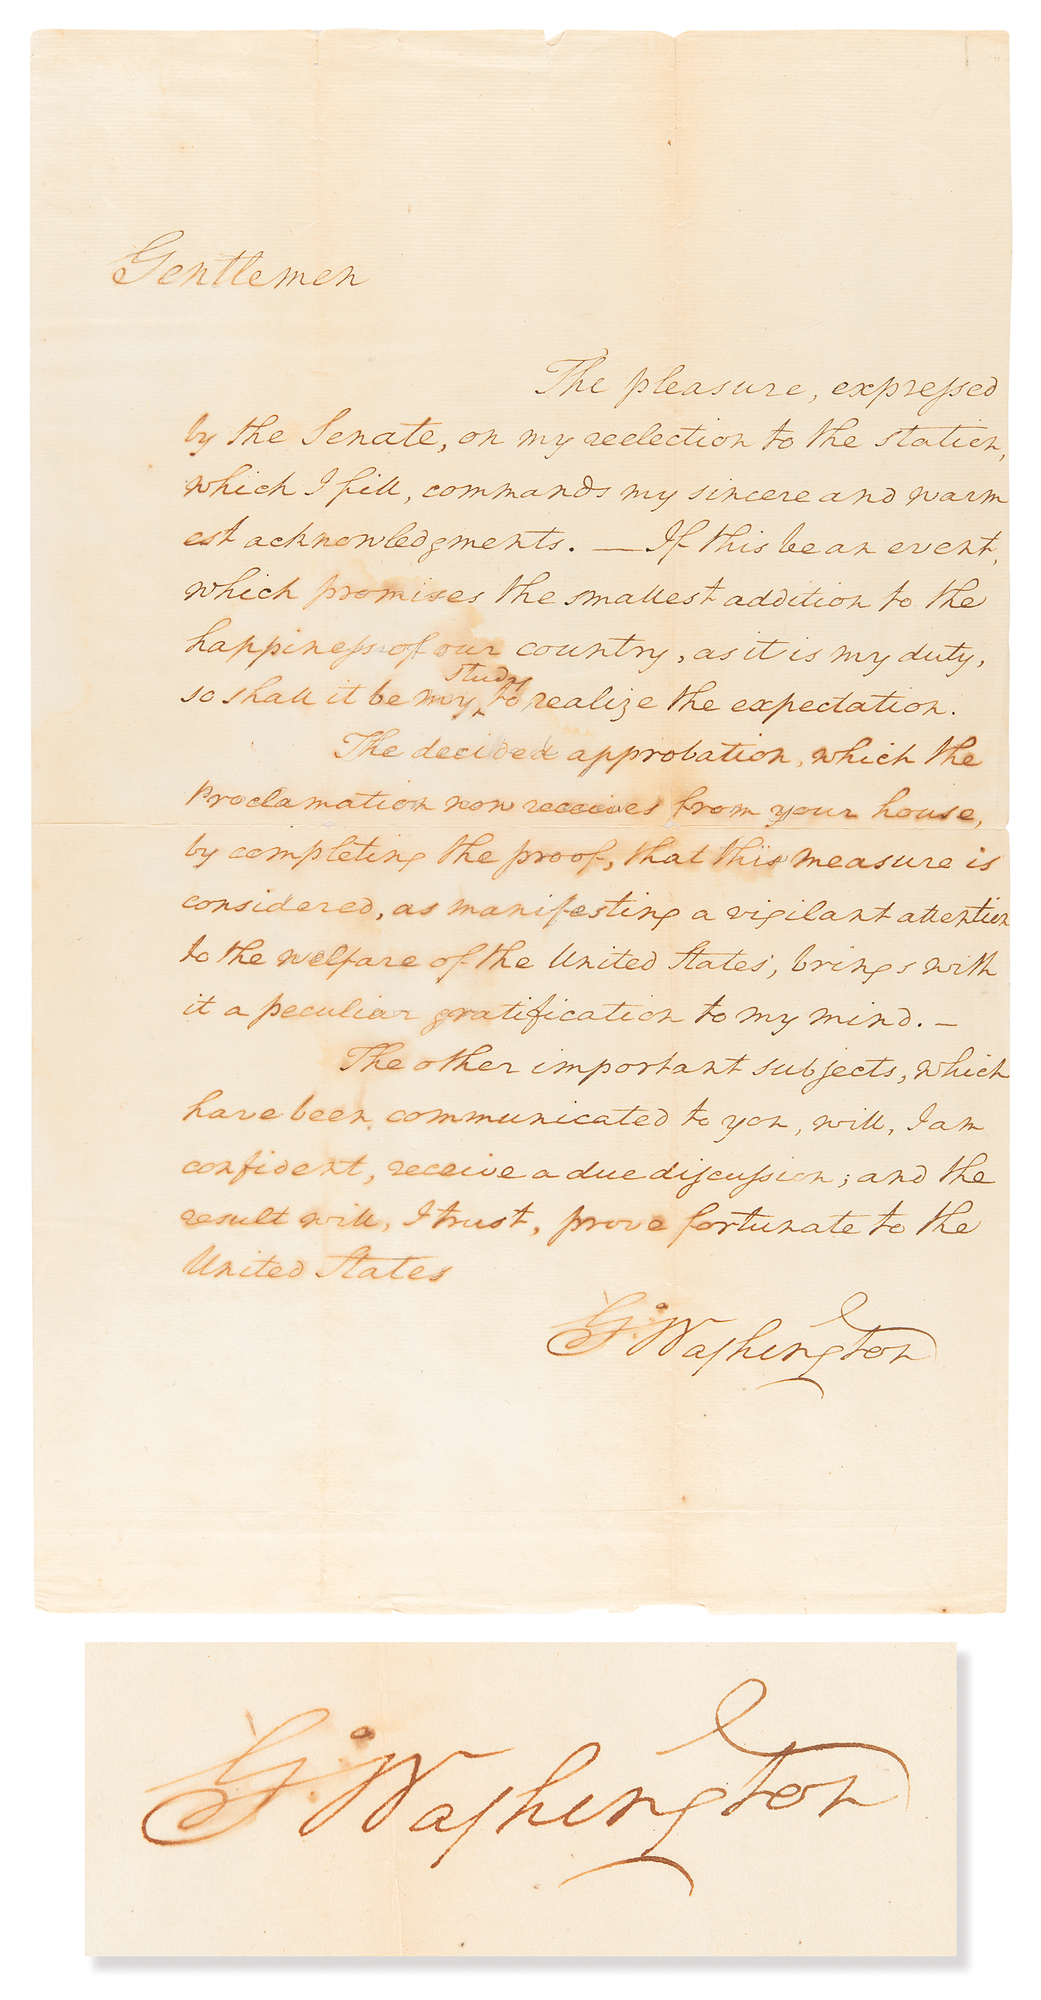 Gentlemen
The pleasure, expressed
by the Senate, on my reelection to the station,
which I fill, commands my sincere and warm
est acknowledgments. — If this be an event,
which promises the smallest addition to the
happiness of our country, as it is my duty,
study
so shall it be my ‸ to realize the expectation.
The decided approbation, which the
Proclamation now receives from your house,
by completing the proof, that this measure is
considered, as manifesting a vigilant attention
to the welfare of the United States, brings with
it a peculiar gratification to my mind. —
The other important subjects, which
have been communicated to you, will, I am
confident, receive a due discussion; and the
result will, I trust, prove fortunate to the
United States
G. Washington
G. Washington